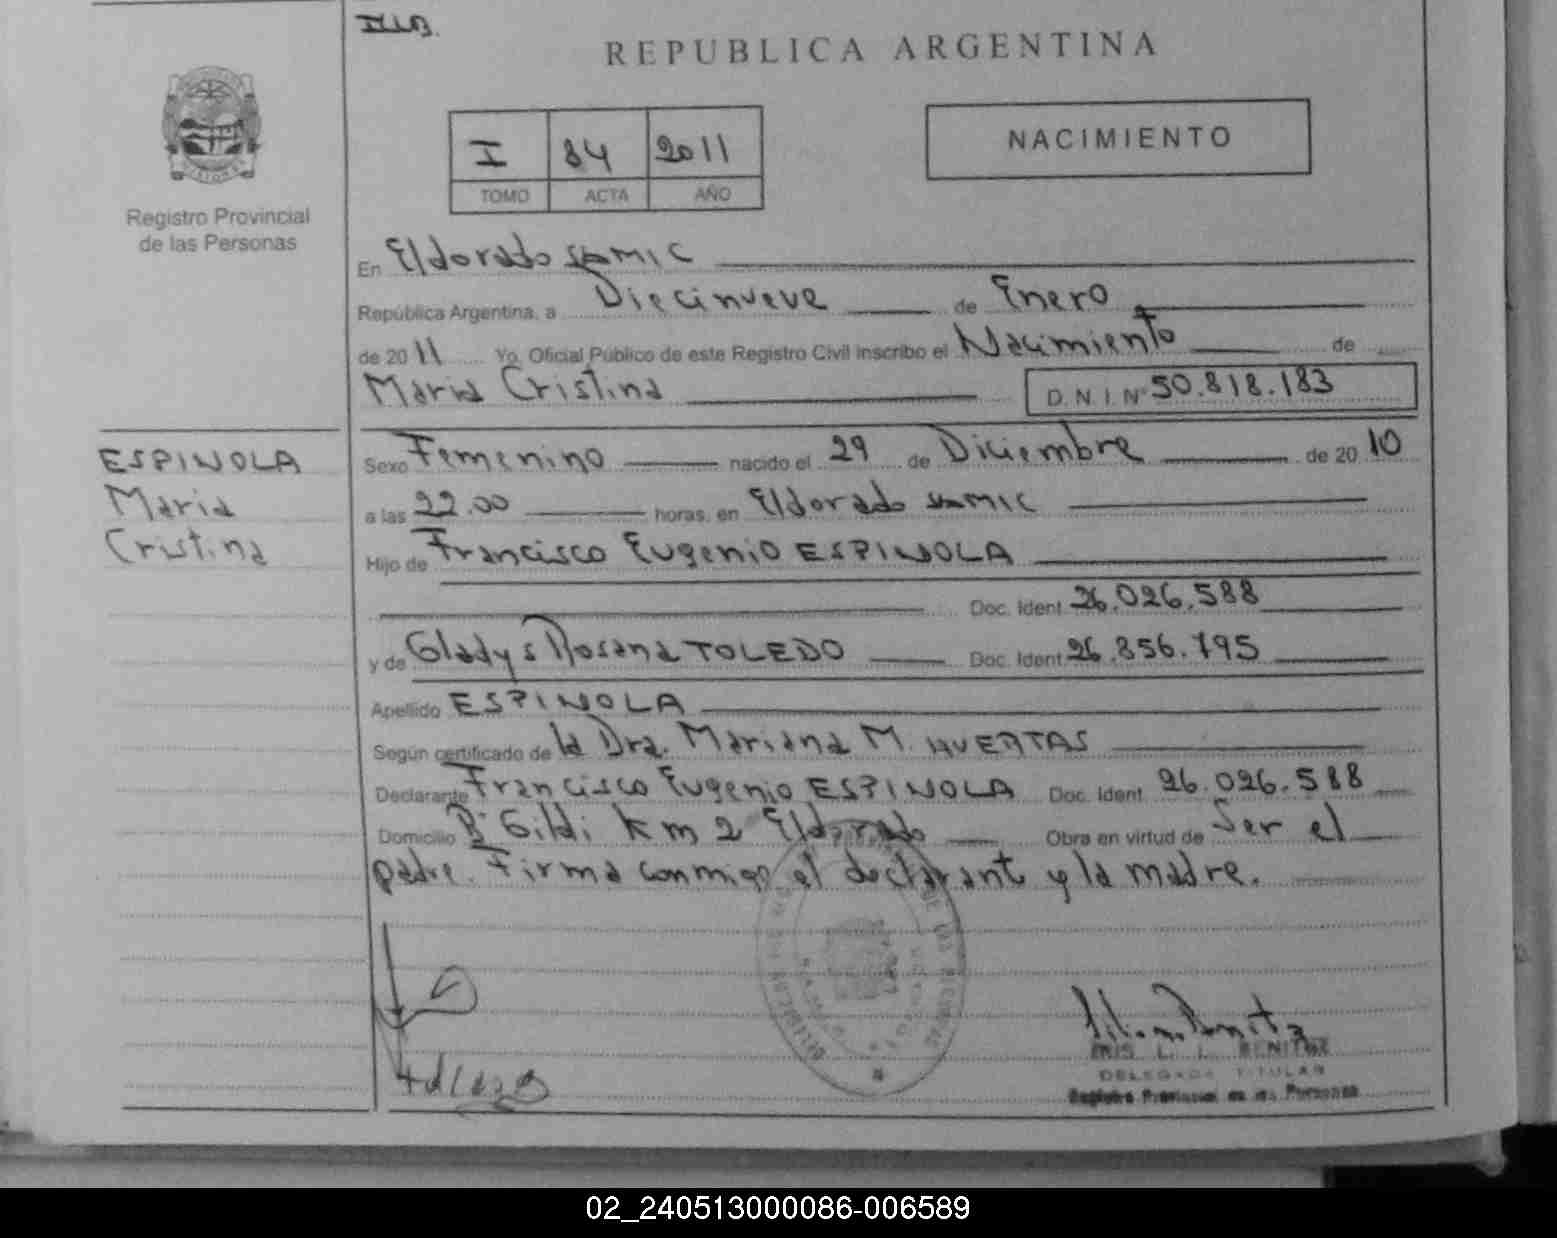 REPUBLICA ARGENTINA
NACIMIENTO
I 84 2011
TOMO ACTA AÑO
Registro Provincial
de las Personas
En Eldorado SAMIC
República Argentina, a Diecinueve de Enero
de 2011 Yo, Oficial Público de este Registro Civil inscribo el Nacimiento de
Maria Cristina D. N. I. Nº 50.818.183
ESPINOLA
Maria
Cristina
Sexo Femenino nacido el 29 de Diciembre de 2010
a las 22.00 horas, en Eldorado SAMIC
Hijo de Francisco Eugenio ESPINOLA
Doc. Ident. 26.026.588
y de Gladys Rosana TOLEDO Doc. Ident. 26.856.795
Apellido ESPINOLA
Según certificado de la Dra. Mariana M. HUERTAS
Declarante Francisco Eugenio ESPINOLA Doc. Ident. 26.026.588
Domicilio Bº Gildi Km 2 Eldorado Obra en virtud de Ser el
padre. Firma conmigo el declarant y la madre.
L. I. BENITEZ
DELEGADA TITULAR
Registro Provincial de las Personas
02_240513000086-006589